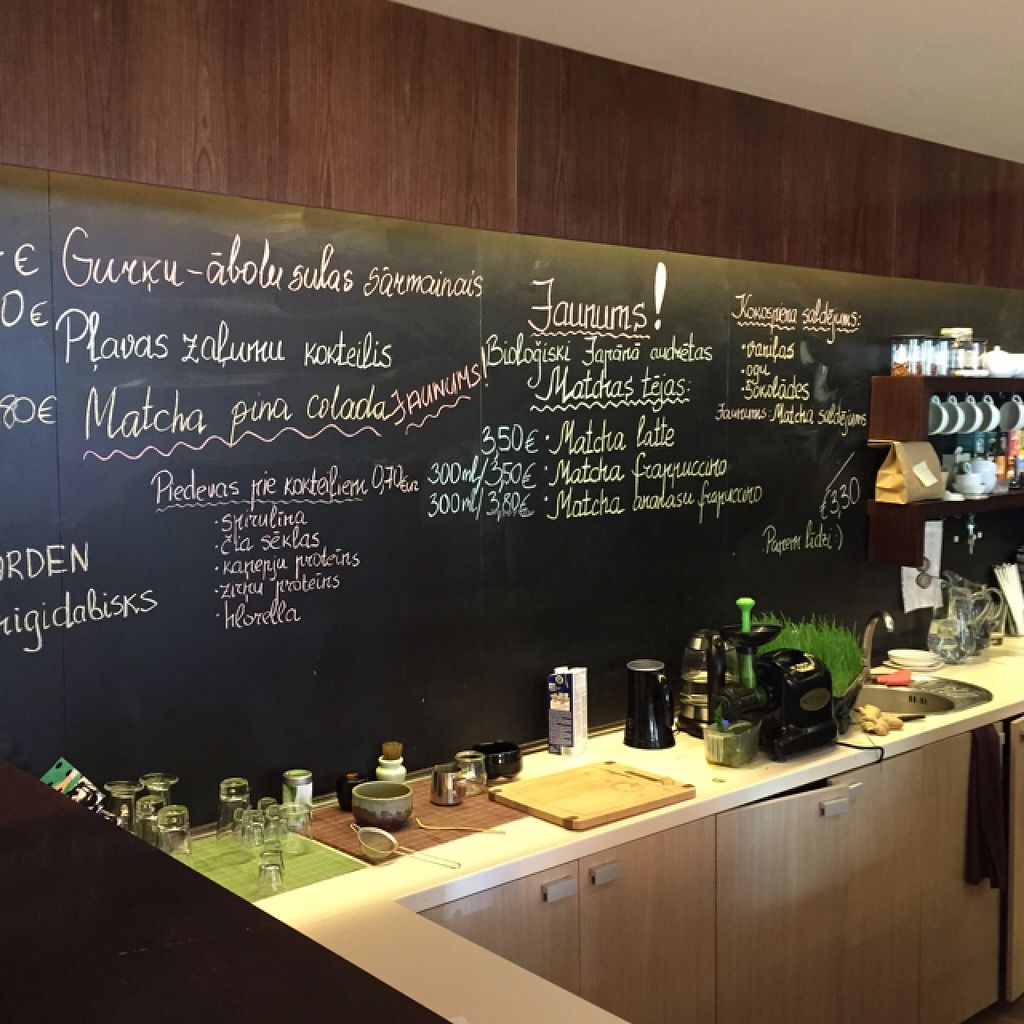 €
0€
80€
ORDEN
rigidabisks
Gurķu-ābolu sulas sārmainais
Pļavas zaļumu kokteilis
Matcha pina colada JAUNUMS!
Piedevas pie kokteiļiem 0,70 eur
·spirulīna
·čia sēklas
·kaņepju proteīns
·zirņu proteīns
·hlorella
Jaunums!
Bioloģiski Japānā audzētas
Matchas tējas:
3,50€ ·Matcha latte
300ml/3,50€ ·Matcha frappuccino
300ml/3,80€ ·Matcha ananasu frapuccino
Kokospiena saldējums:
·vaniļas
·ogu
·šokolādes
Jaunums: Matcha saldējums
€3,30
Paņem līdzi :)